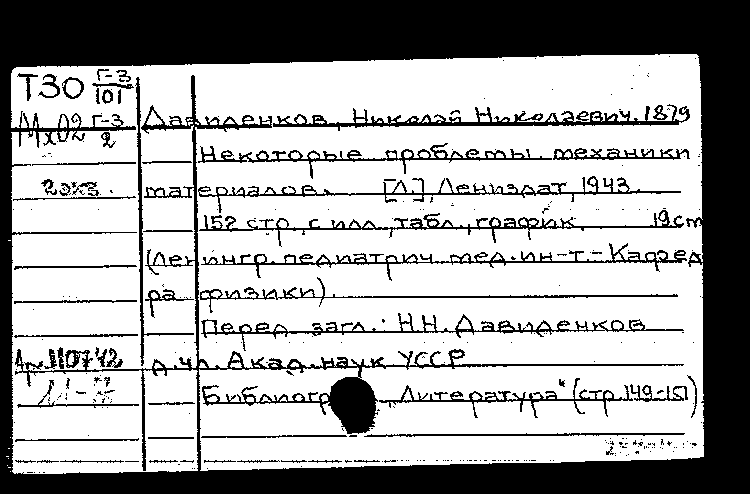 Т30 Г-3/101
Мх02 Г-3/2
Давиденков, Николай Николаевич. 1879
Некоторые проблемы механики
2 экз. материалов. [Л.], Лениздат, 1943.
152 стр. с илл., табл., график. 19 cm
(Ленингр. педиатрич. мед. ин-т. - Кафед
ра физики).
Перед загл.: Н.Н. Давиденков
Арх. 110742 д. чл. Акад. наук УССР
Библиогр „Литература“ (стр. 149-151)